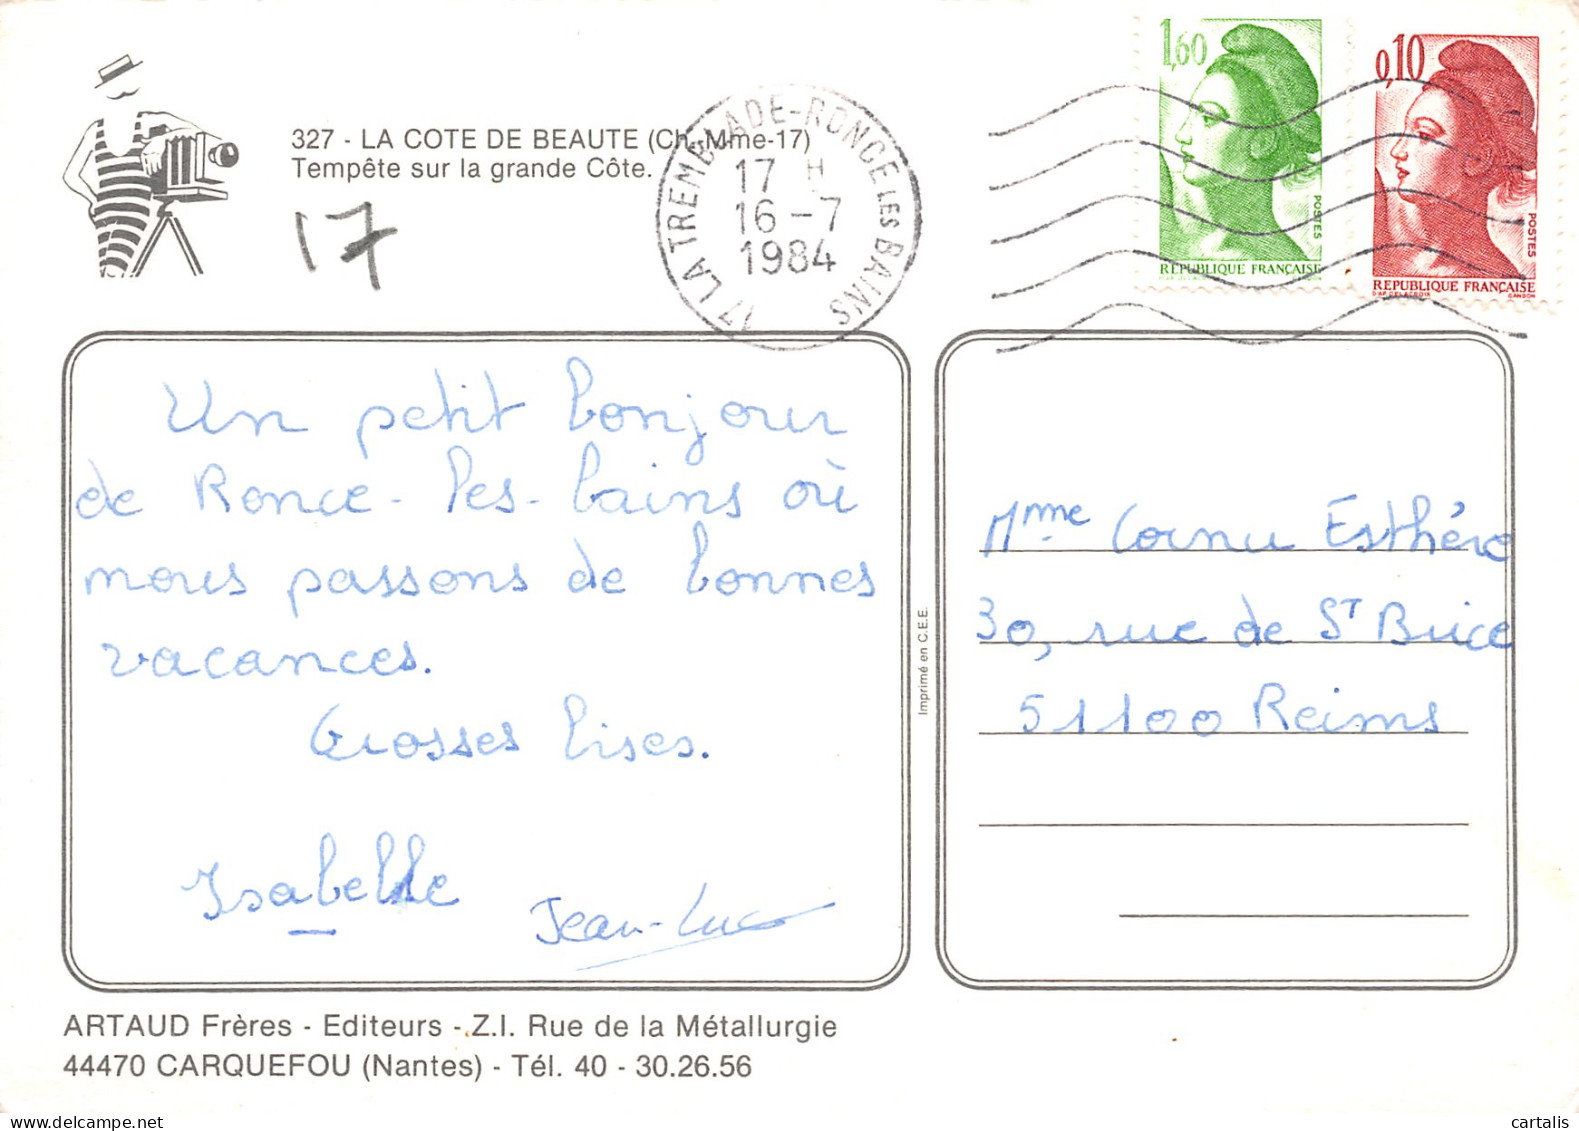 327 - LA COTE DE BEAUTE (Ch.-Mme-17)
Tempête sur la grande Côte.
17
17 LA TREMBLADE-RONCE LES BAINS
17 H
16 -7
1984
1,60
POSTES
REPUBLIQUE FRANÇAISE
0,10
POSTES
REPUBLIQUE FRANÇAISE
D'AP. DELACROIX GANDON
Un petit bonjour
de Ronce-les-bains où
nous passons de bonnes
vacances.
Grosses bises.
Isabelle
Jean-Luc
Imprimé en C.E.E.
Mme Cornu Esthère
30, rue de St Brice
51100 Reims
ARTAUD Frères - Editeurs - Z.I. Rue de la Métallurgie
44470 CARQUEFOU (Nantes) - Tél. 40 - 30.26.56
cartalis